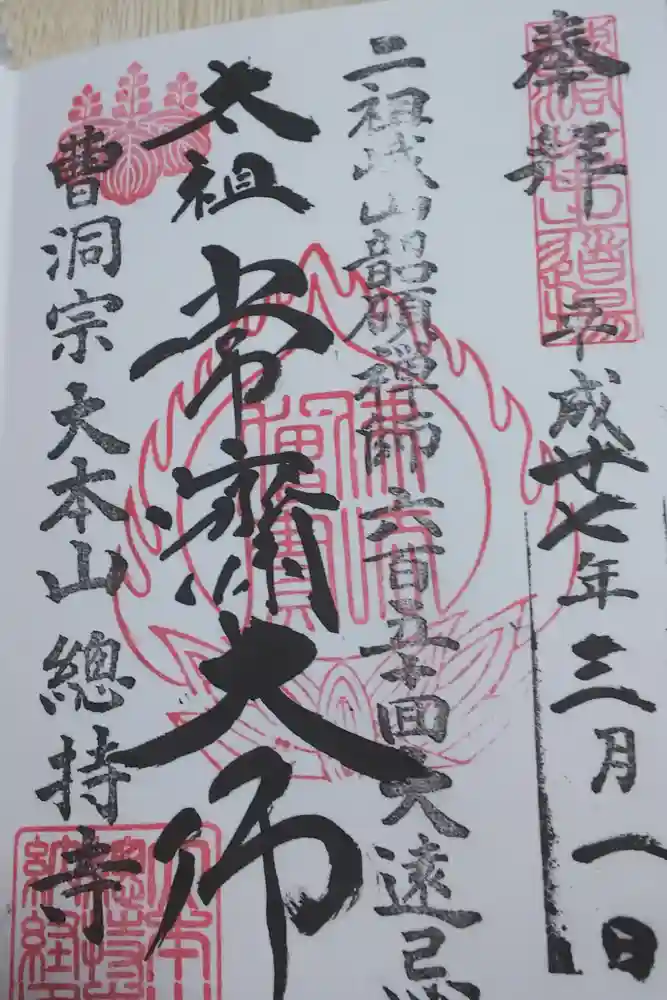 奉拝
平成廿七年三月一日
二祖峨山韶碩禅師六百五十回大遠忌
太祖常濟大師
曹洞宗大本山總持寺